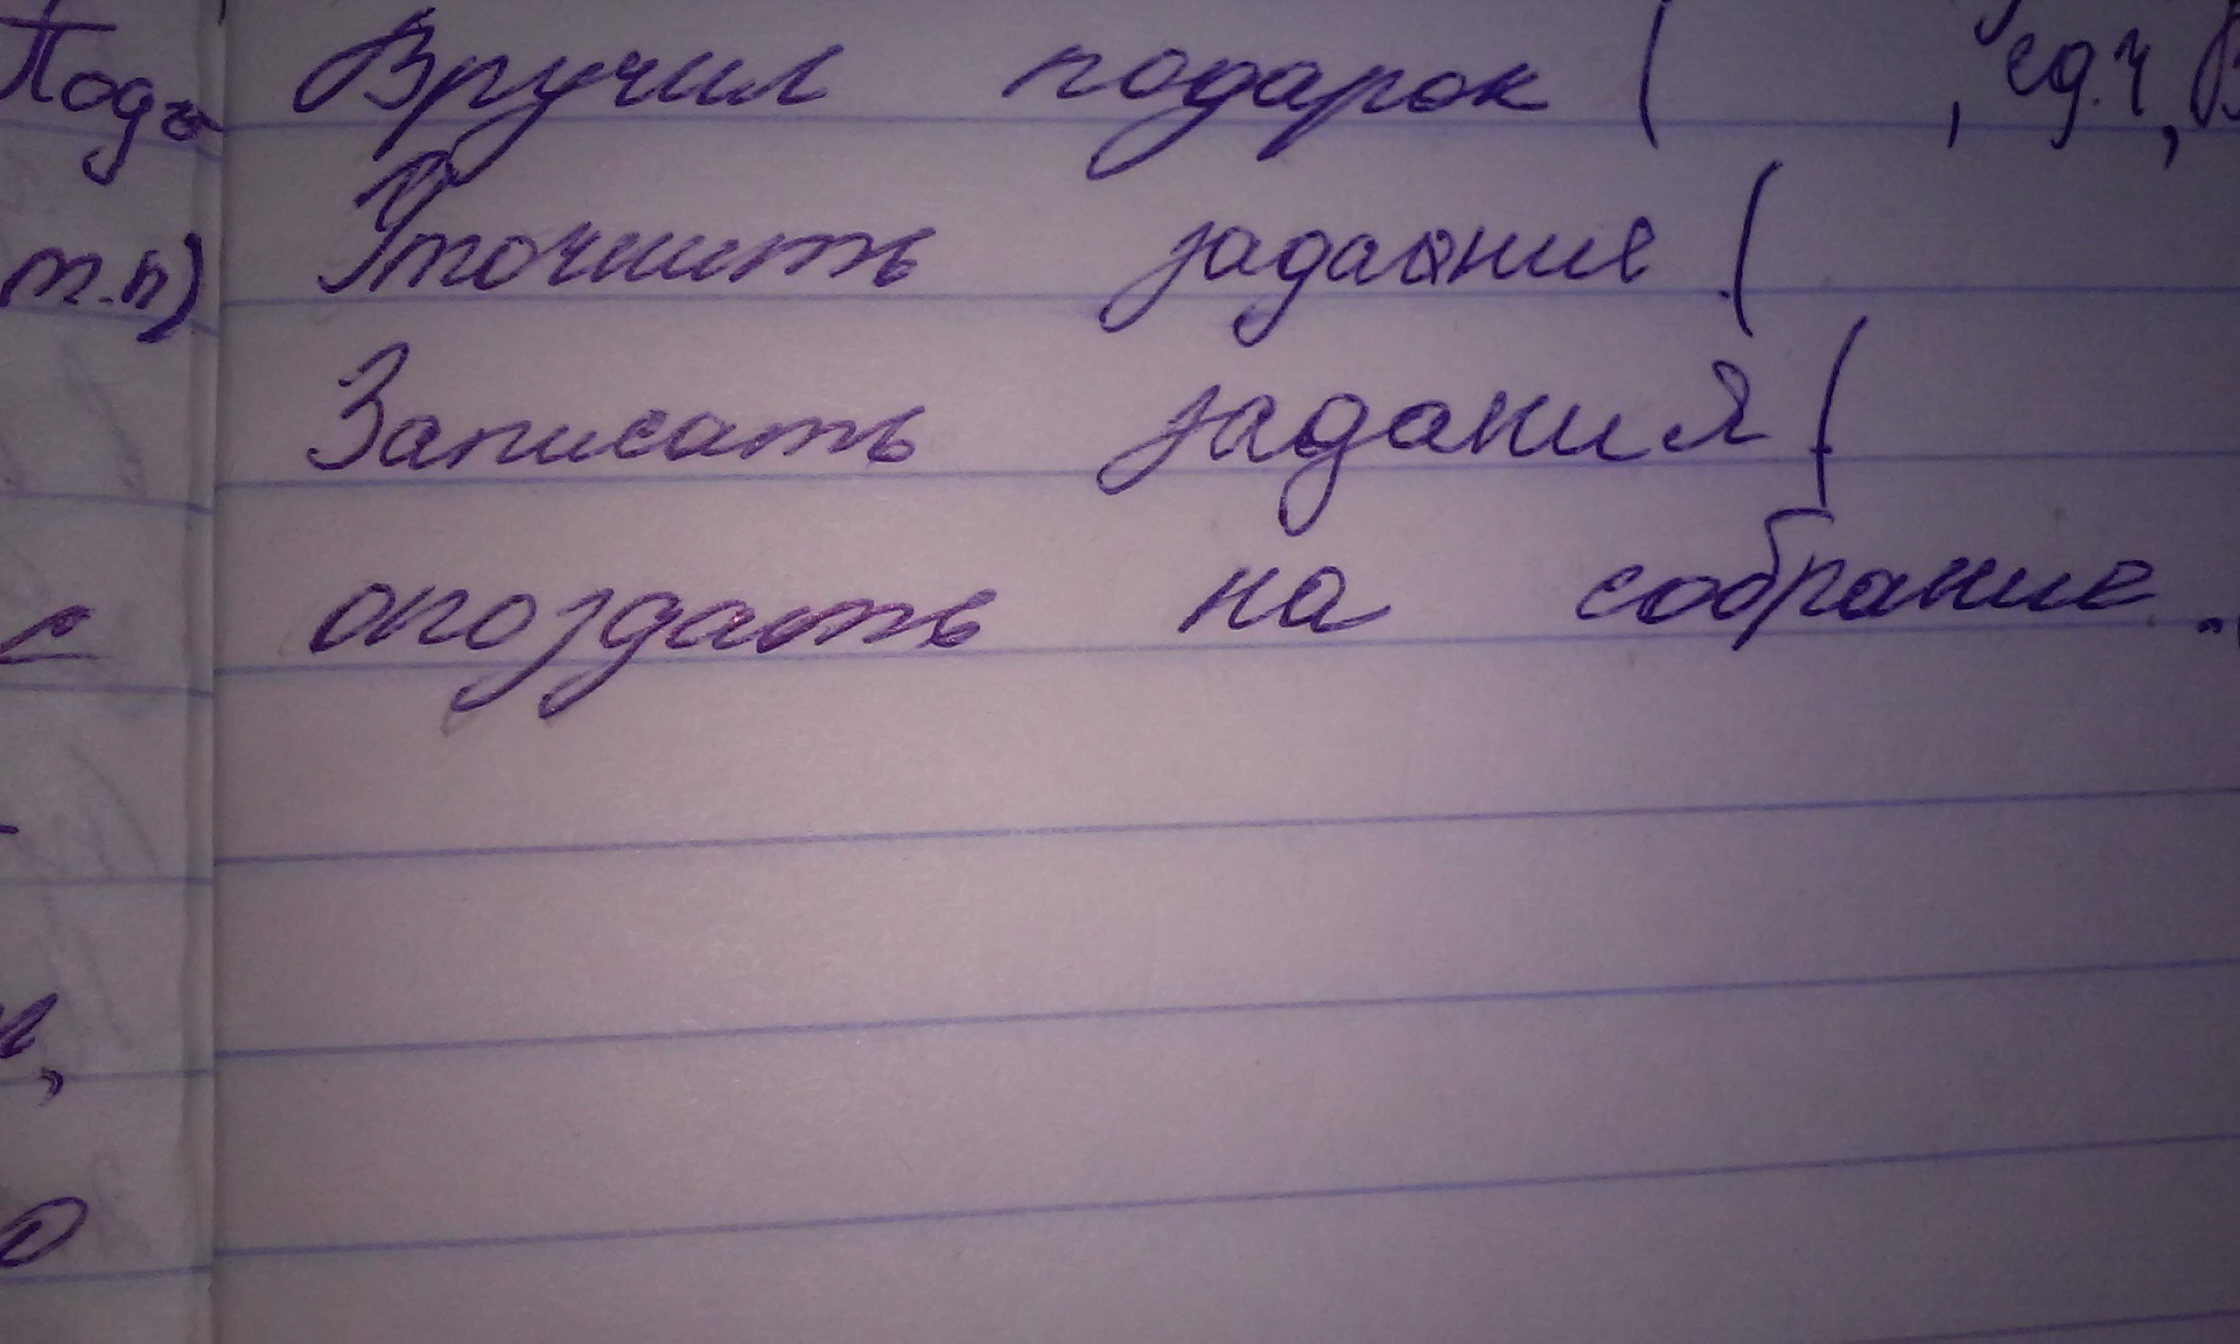 Подъ Вручил подарок ( , ед.ч, В
т.п) Уточнить задание (
Записать задания (
с опоздать на собрание.